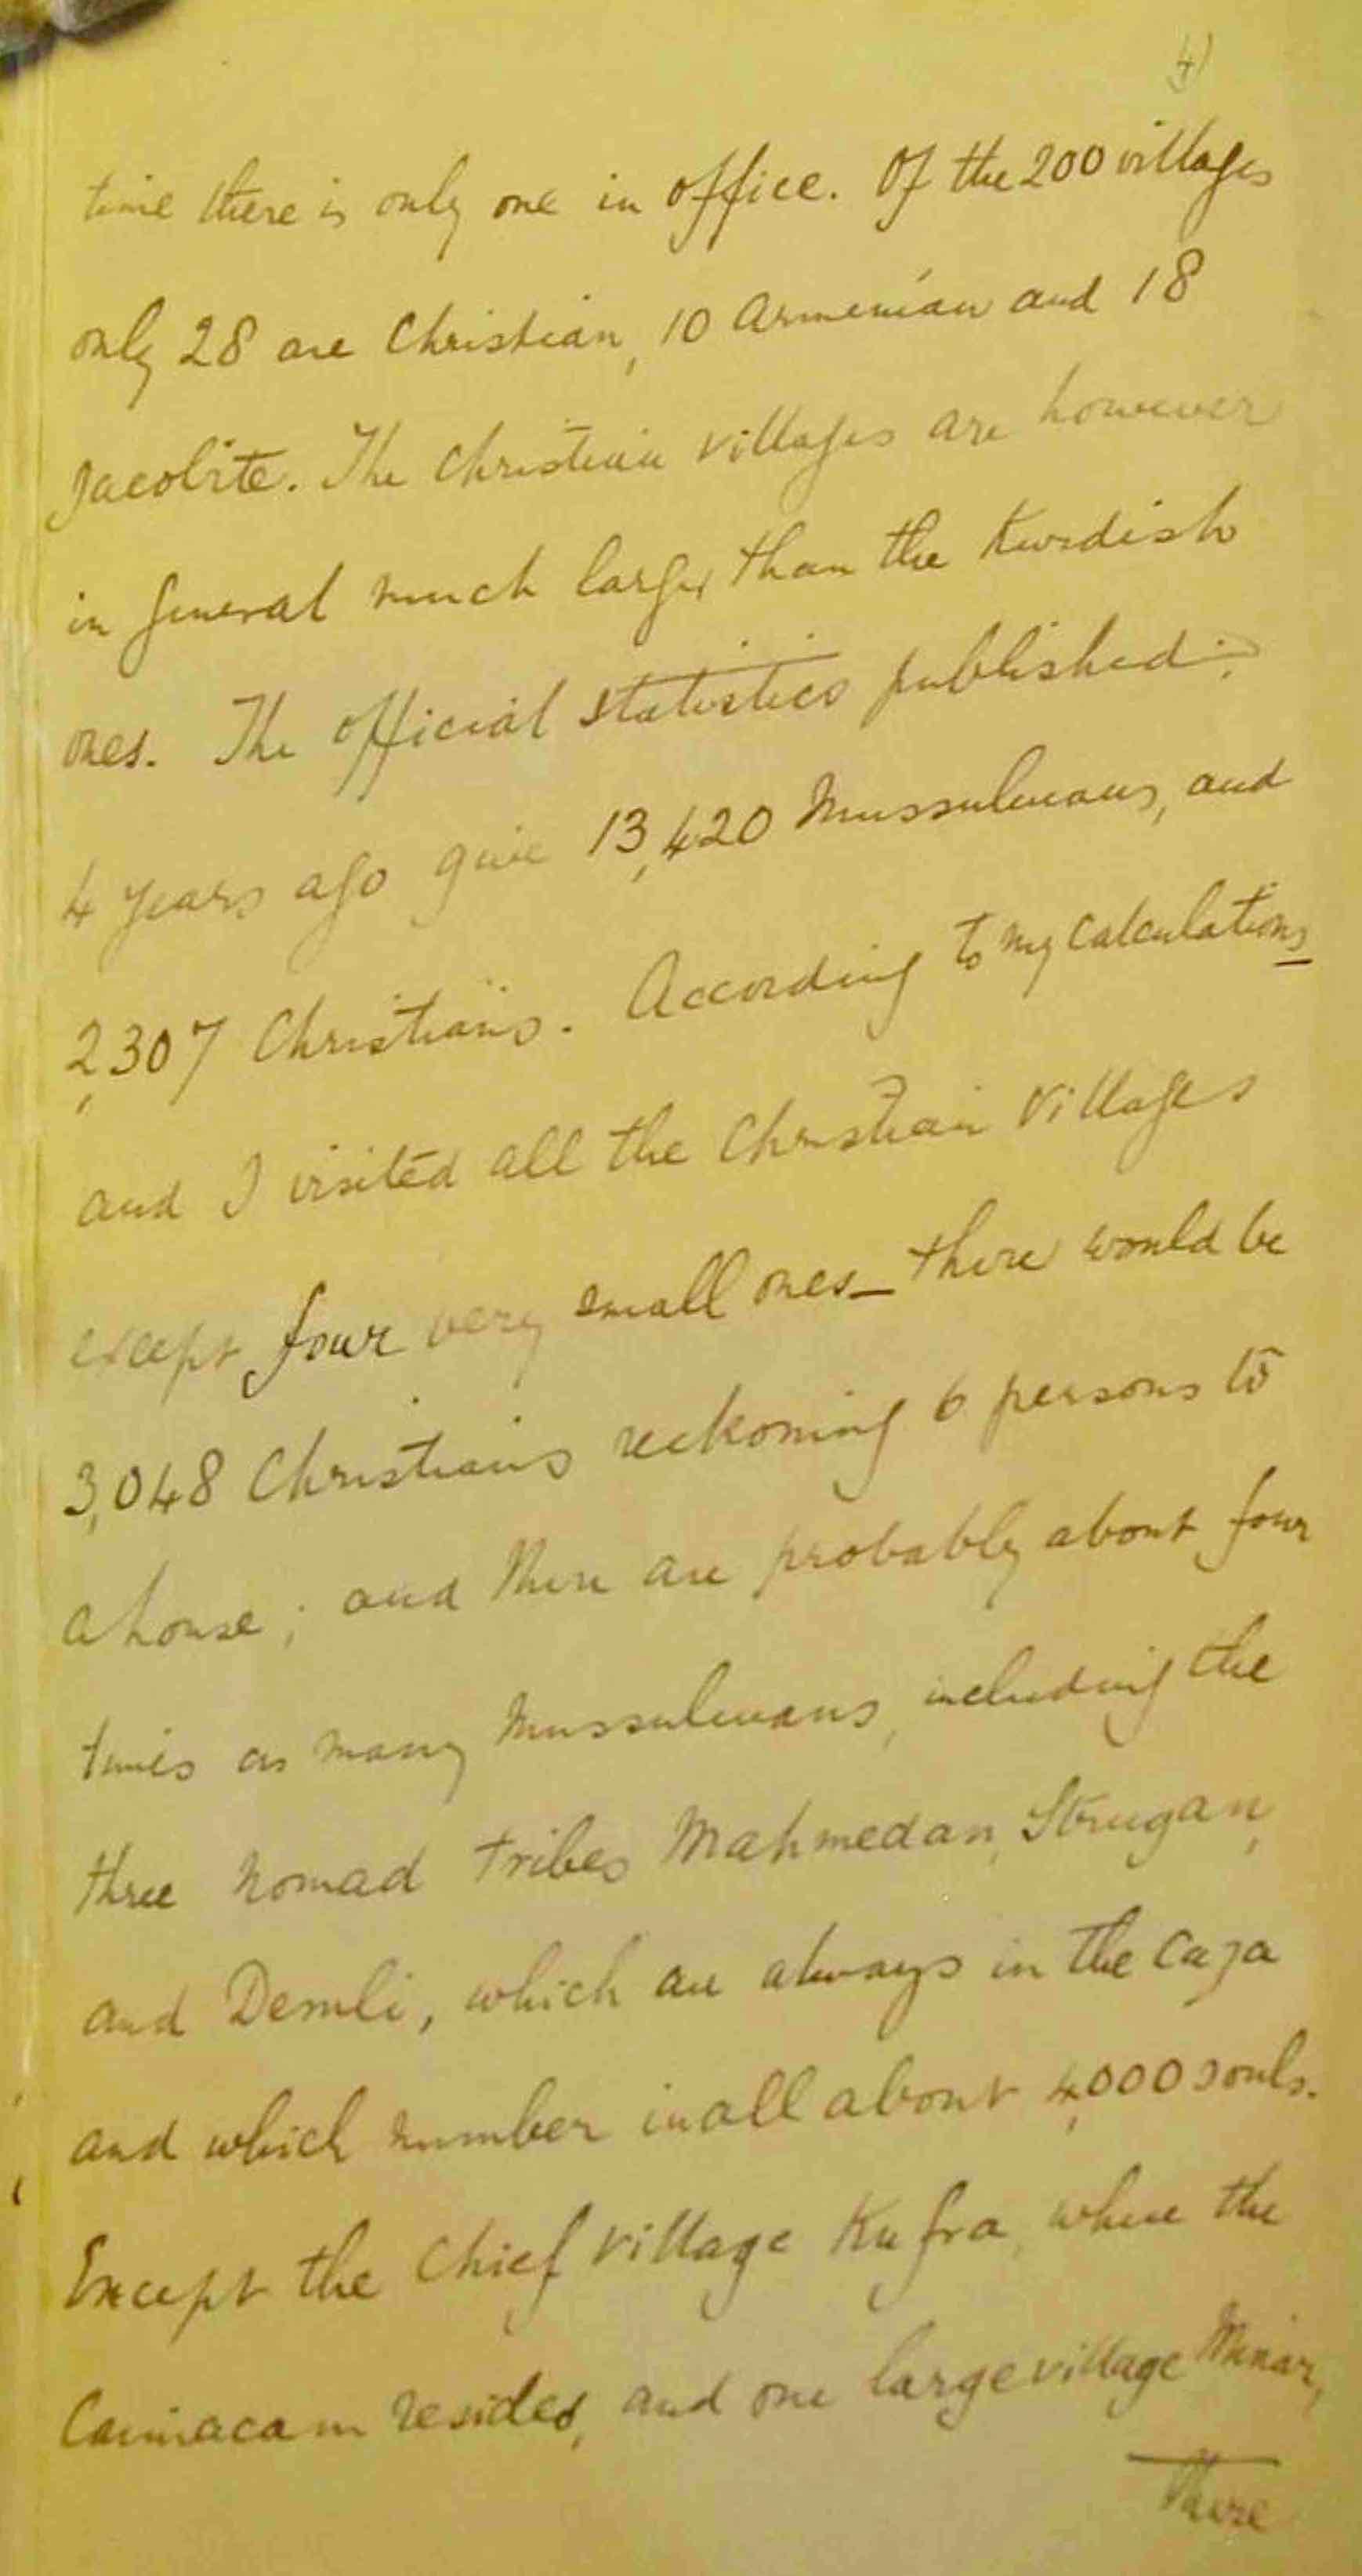 4)
time there is only one in office. Of the 200 villages
only 28 are Christian, 10 Armenian and 18
Jacobite. The Christian villages are however
in general much larger than the Kurdish
ones. The official statistics published
4 years ago give 13,420 Mussulmans, and
2,307 Christians. According to my calculations
and I visited all the Christian villages
except four very small ones _ there would be
3,048 Christians reckoning 6 persons to
a house; and there are probably about four
times as many Mussulmans, including the
three nomad tribes Mahmedan, Strugan,
and Demli, which are always in the Caza
and which number in all about 4,000 souls.
Except the Chief village Kufra, where the
Caimacam resides, and one large village Minar,
There